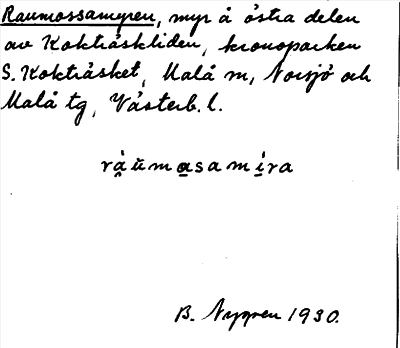 Raumossamyren, myr å östra delen
av Kokträskliden, kronoparken
S. Kokträsket, Malå m, Norsjö och
Malå tg, Västerb. l.
ràŭmasamíra
B. Nygren 1930.